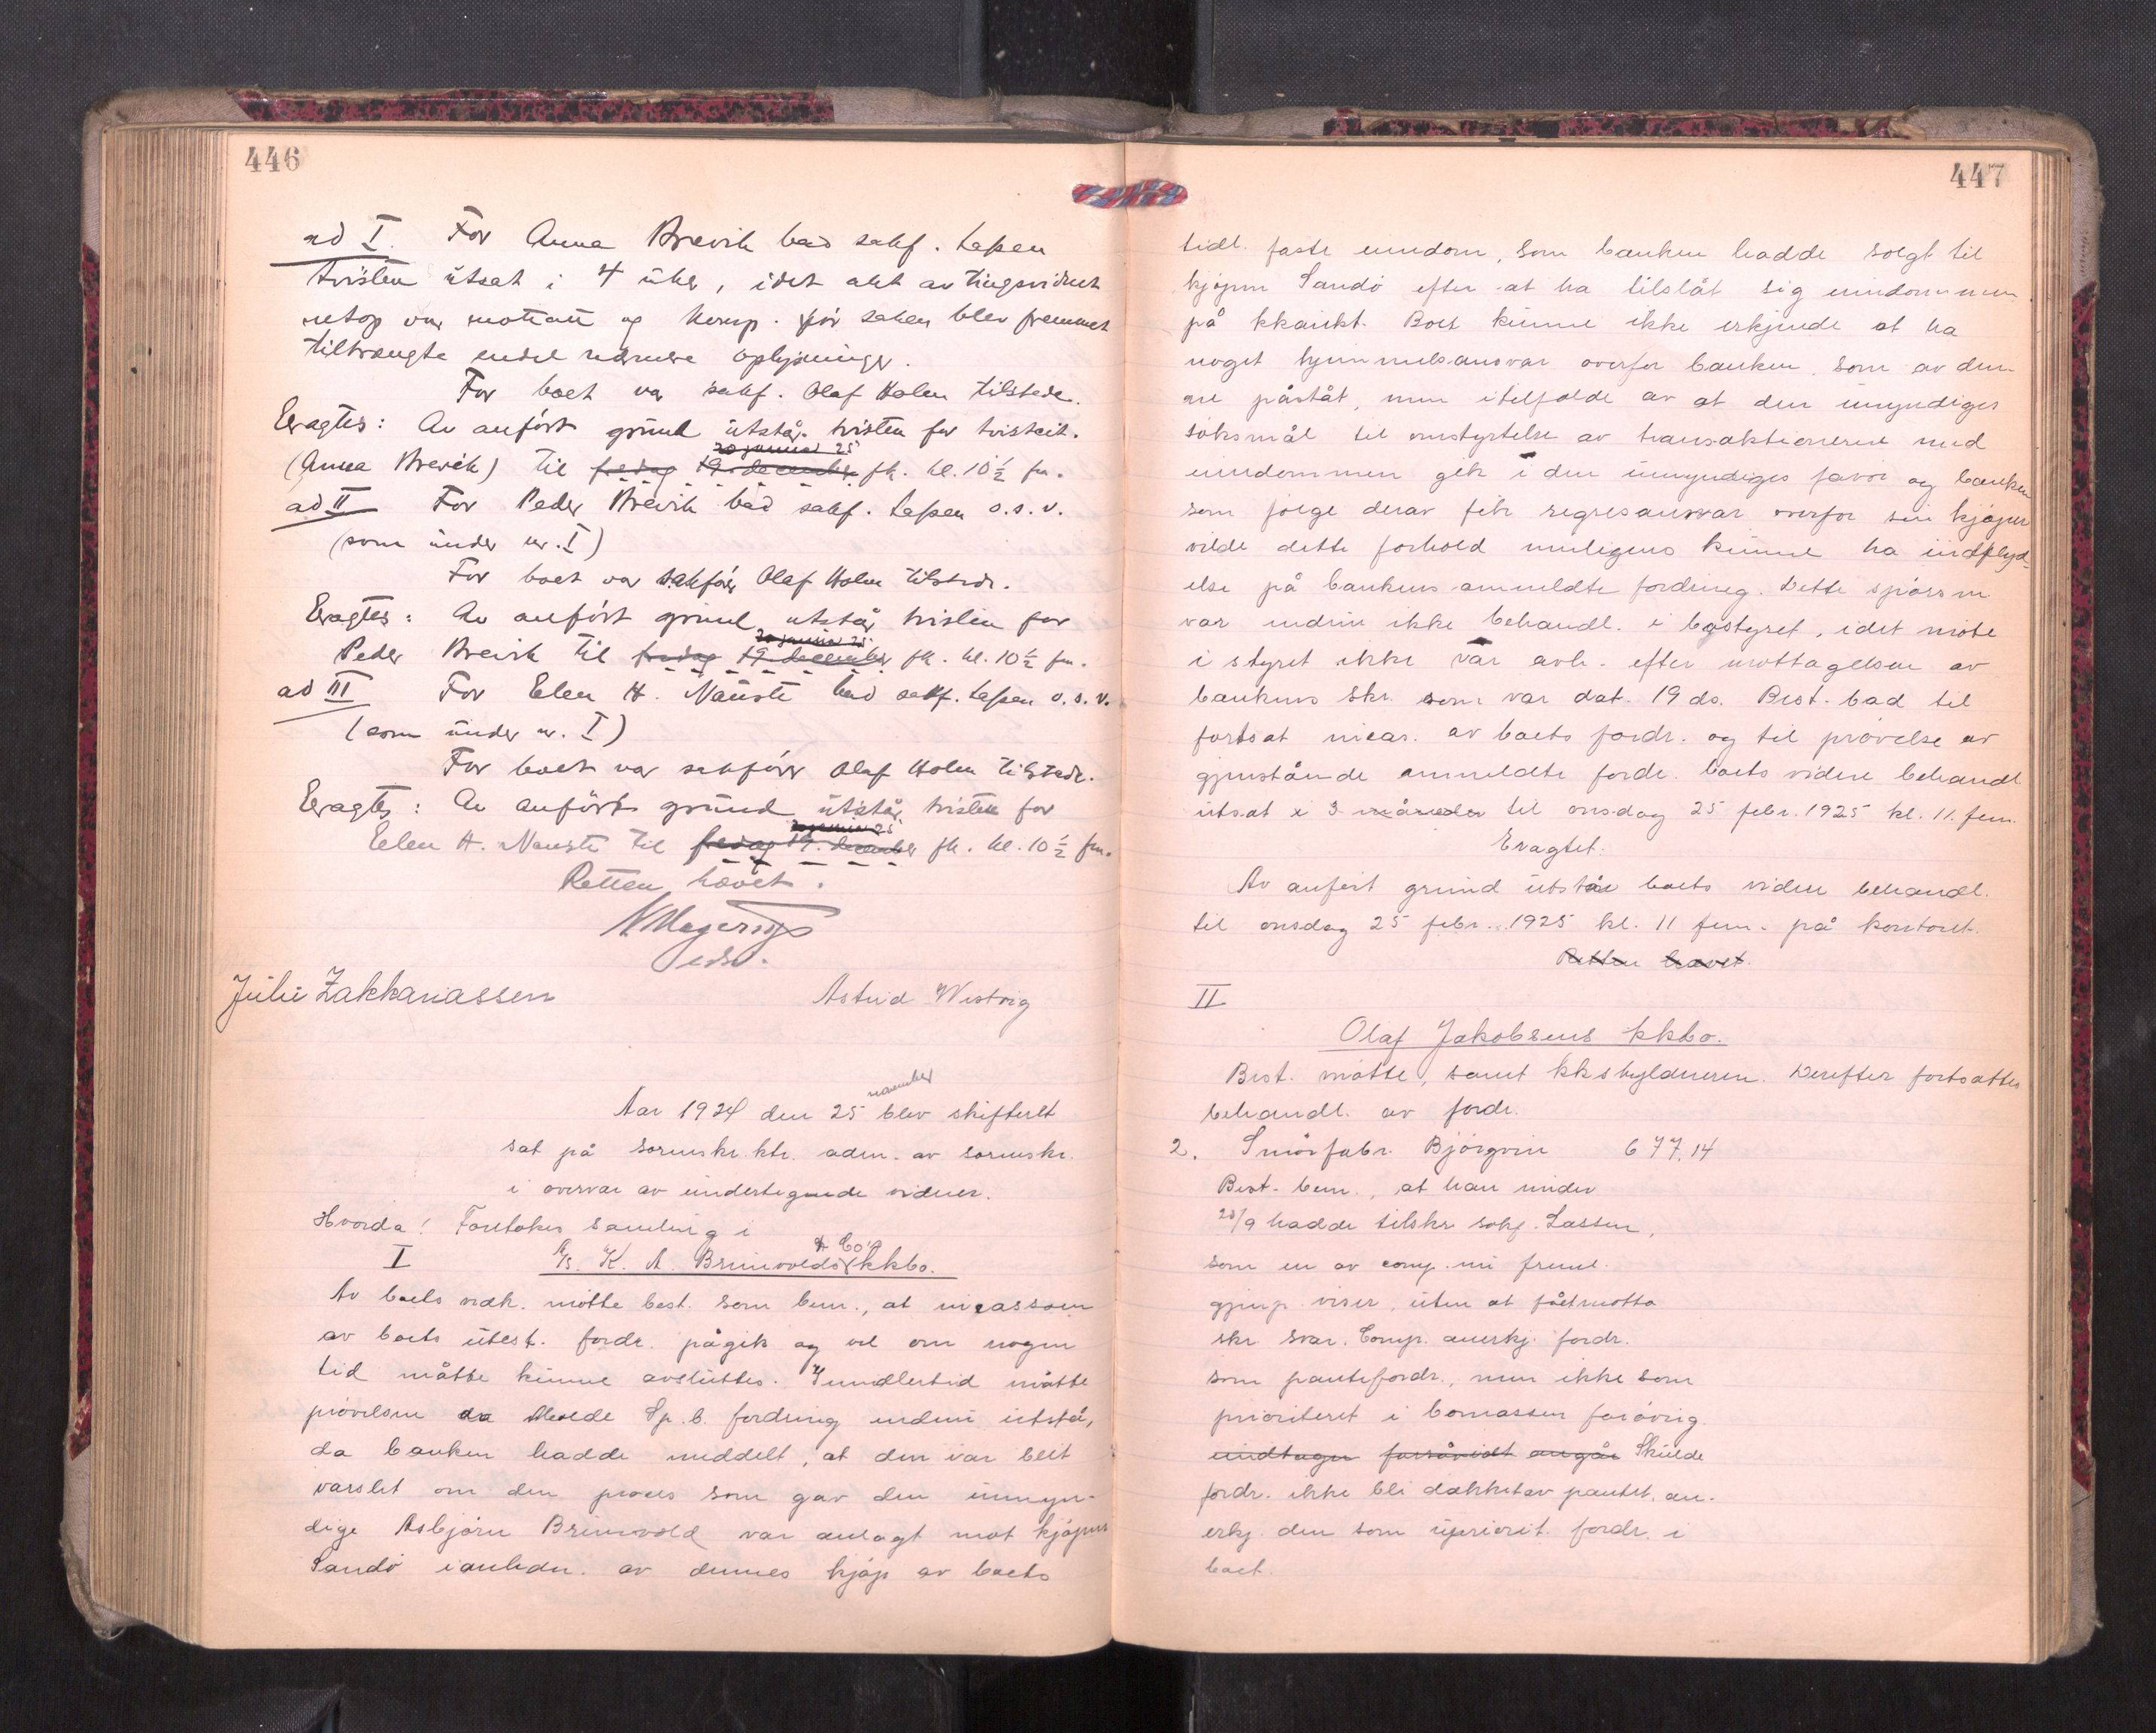 446
ad I. For Anna Brevik bad sakf. Lassen
tvisten utsat i 4 uker, idet akt av tingsvidnet
netop var mottatt og komp. før saken blev fremmet
tiltrængte endel nærmere oplysninger.
For boet var sakf. Olaf Holen tilstede.
Eragtes: Av anført grund utstår tvisten for tvisteit.
20 januar 25
(Anna Brevik) til fredag 19. december fk. kl. 10½ fm.
ad II For Peder Brevik bad sakf. Lassen o.s.v.
(som under nr. I)
For boet var sakfører Olaf Holen tilstede.
Eragtes: Av anført grund utstår tvisten for
20 januar 25
Peder Brevik til fredag 19 december fk. kl. 10½ fm.
ad III For Elen H. Nauste bad sakf. Lassen o.s.v.
(som under nr. I)
For boet var sakfører Olaf Holen tilstede.
Eragtes: Av anført grund utstår tvisten for
20 januar 25
Elen H. Nauste til fredag 19. december fk. kl. 10½ fm.
Retten hævet.
Julie Zakkariassen Astrid Westvig
november
Aar 1924 den 25 blev skifterett
sat på sorenskr. ktr. adm. av sorenskr.
i overvær av undertegnede vidner.
Hvorda! Foretokes samling i
& Co's
I A/s. K. A. Brunvolds kkbo.
Av boets vedk. møtte best. som bem., at incassoen
av boets utest. fordr. pågik og vel om nogen
tid måtte kunne avsluttes. Imidlertid måtte
prøvelsen av Molde Sp.b. fordring endnu utstå,
da banken hadde meddelt, at den var blit
varslet om den proces som gav den umyn-
dige Asbjørn Brunvold var anlagt mot kjøper
Sandø i anledn. av dennes kjøp av boets
447
tidl. faste eiendom, som banken hadde solgt til
kjøper Sandø efter at ha tilslåt sig eiendommen
på kkaukt. Boet kunne ikke erkjende at ha
noget hjemmelsansvar overfor banken, som av den-
ne påståt, men itelfælde av at den umyndiges
søksmål til omstyrtelse av transaktionerne med
eiendommen gik i den umyndiges favør og banken
som følge derav fik regresansvar overfor sin kjøper
vilde dette forhold muligens kunne ha indflyd-
else på bankens anmeldte fordring. Dette spørsm.
var endnu ikke behandl. i bostyret, idet møte
i styret ikke var avh. efter mottagelsen av
bankens skr. som var dat. 19 ds. Best. bad til
fortsat incas. av boets fordr. og til prøvelse av
gjenstående anmeldte fordr. boets videre behandl.
utsat i 3 måneder til onsdag 25 febr. 1925 kl. 11. fem.
Eragtet:
Av anført grund utstår boets videre behandl.
til onsdag 25 febr. 1925 kl. 11 fem. på kontoret.
Retten hævet.
II
Olaf Jakobsens kkbo.
Best. møtte, samt kkskyldneren. Derefter fortsattes
behandl. av fordr.
2. Smørfabr. Bjørgvin 677,14
Best. bem., at han under
20/9 hadde tilskr. sakf. Lassen,
som en av comp. nu freml.
gjenp. viser, uten at få mottat
skr. svar. Comp. anerkj. fordr.
som pantefordr., men ikke som
prioriteret i bomassen forøvrig.
undtagen forsåvidt angår Skulde
fordr. ikke bli dækket av pantet, an-
erkj. den som uprioritt. fordr. i
boet.